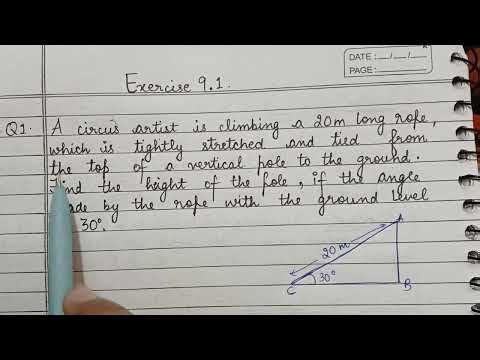 DATE: __/__/__
PAGE:
Exercise 9.1.
Q1. A circus artist is climbing a 20m long rope,
which is tightly stretched and tied from
the top of a vertical pole to the ground.
Find the hight of the pole, if the angle
by the rope with the ground level
30°.
A
20 m
30°
C
B